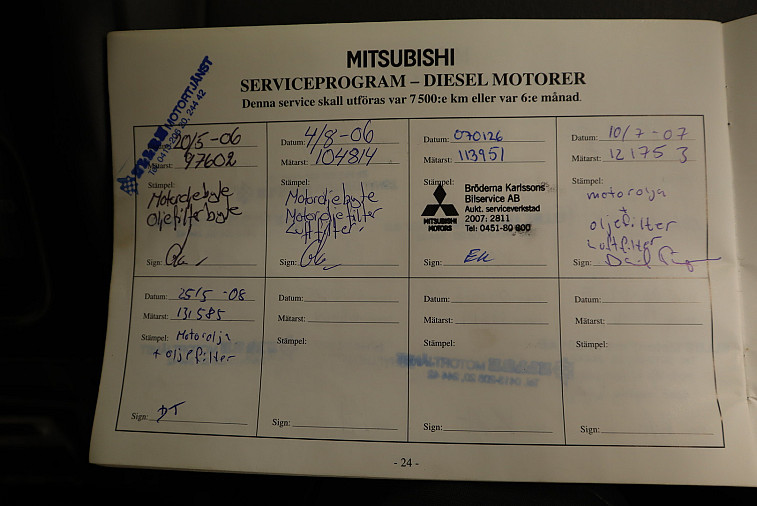 MITSUBISHI
SERVICEPROGRAM – DIESEL MOTORER
Denna service skall utföras var 7 500:e km eller var 6:e månad.
MOTORTJÄNST
Datum: 20/5-06
Mätarst: 97602
Motoroljebyte
Oljefilterbyte
Sign:
Datum: 4/8-06
Mätarst: 104814
Stämpel:
Motoroljebyte
Motoroljefilter
Luftfilter.
Sign:
Datum: 070126
Mätarst: 113951
Stämpel:
MITSUBISHI
MOTORS
Bröderna Karlssons
Bilservice AB
Aukt. serviceverkstad
2007: 2811
Tel: 0451-80 800
Sign: EK
Datum: 10/7-07
Mätarst: 121753
Stämpel:
motorolja
+
oljefilter
Luftfilter
Sign:
Datum: 25/5-08
Mätarst: 131585
Stämpel: Motorolja
+ oljefilter
Sign: DT
Datum:
Mätarst:
Stämpel:
Sign:
Datum:
Mätarst:
Stämpel:
Sign:
Datum:
Mätarst:
Stämpel:
Sign:
- 24 -